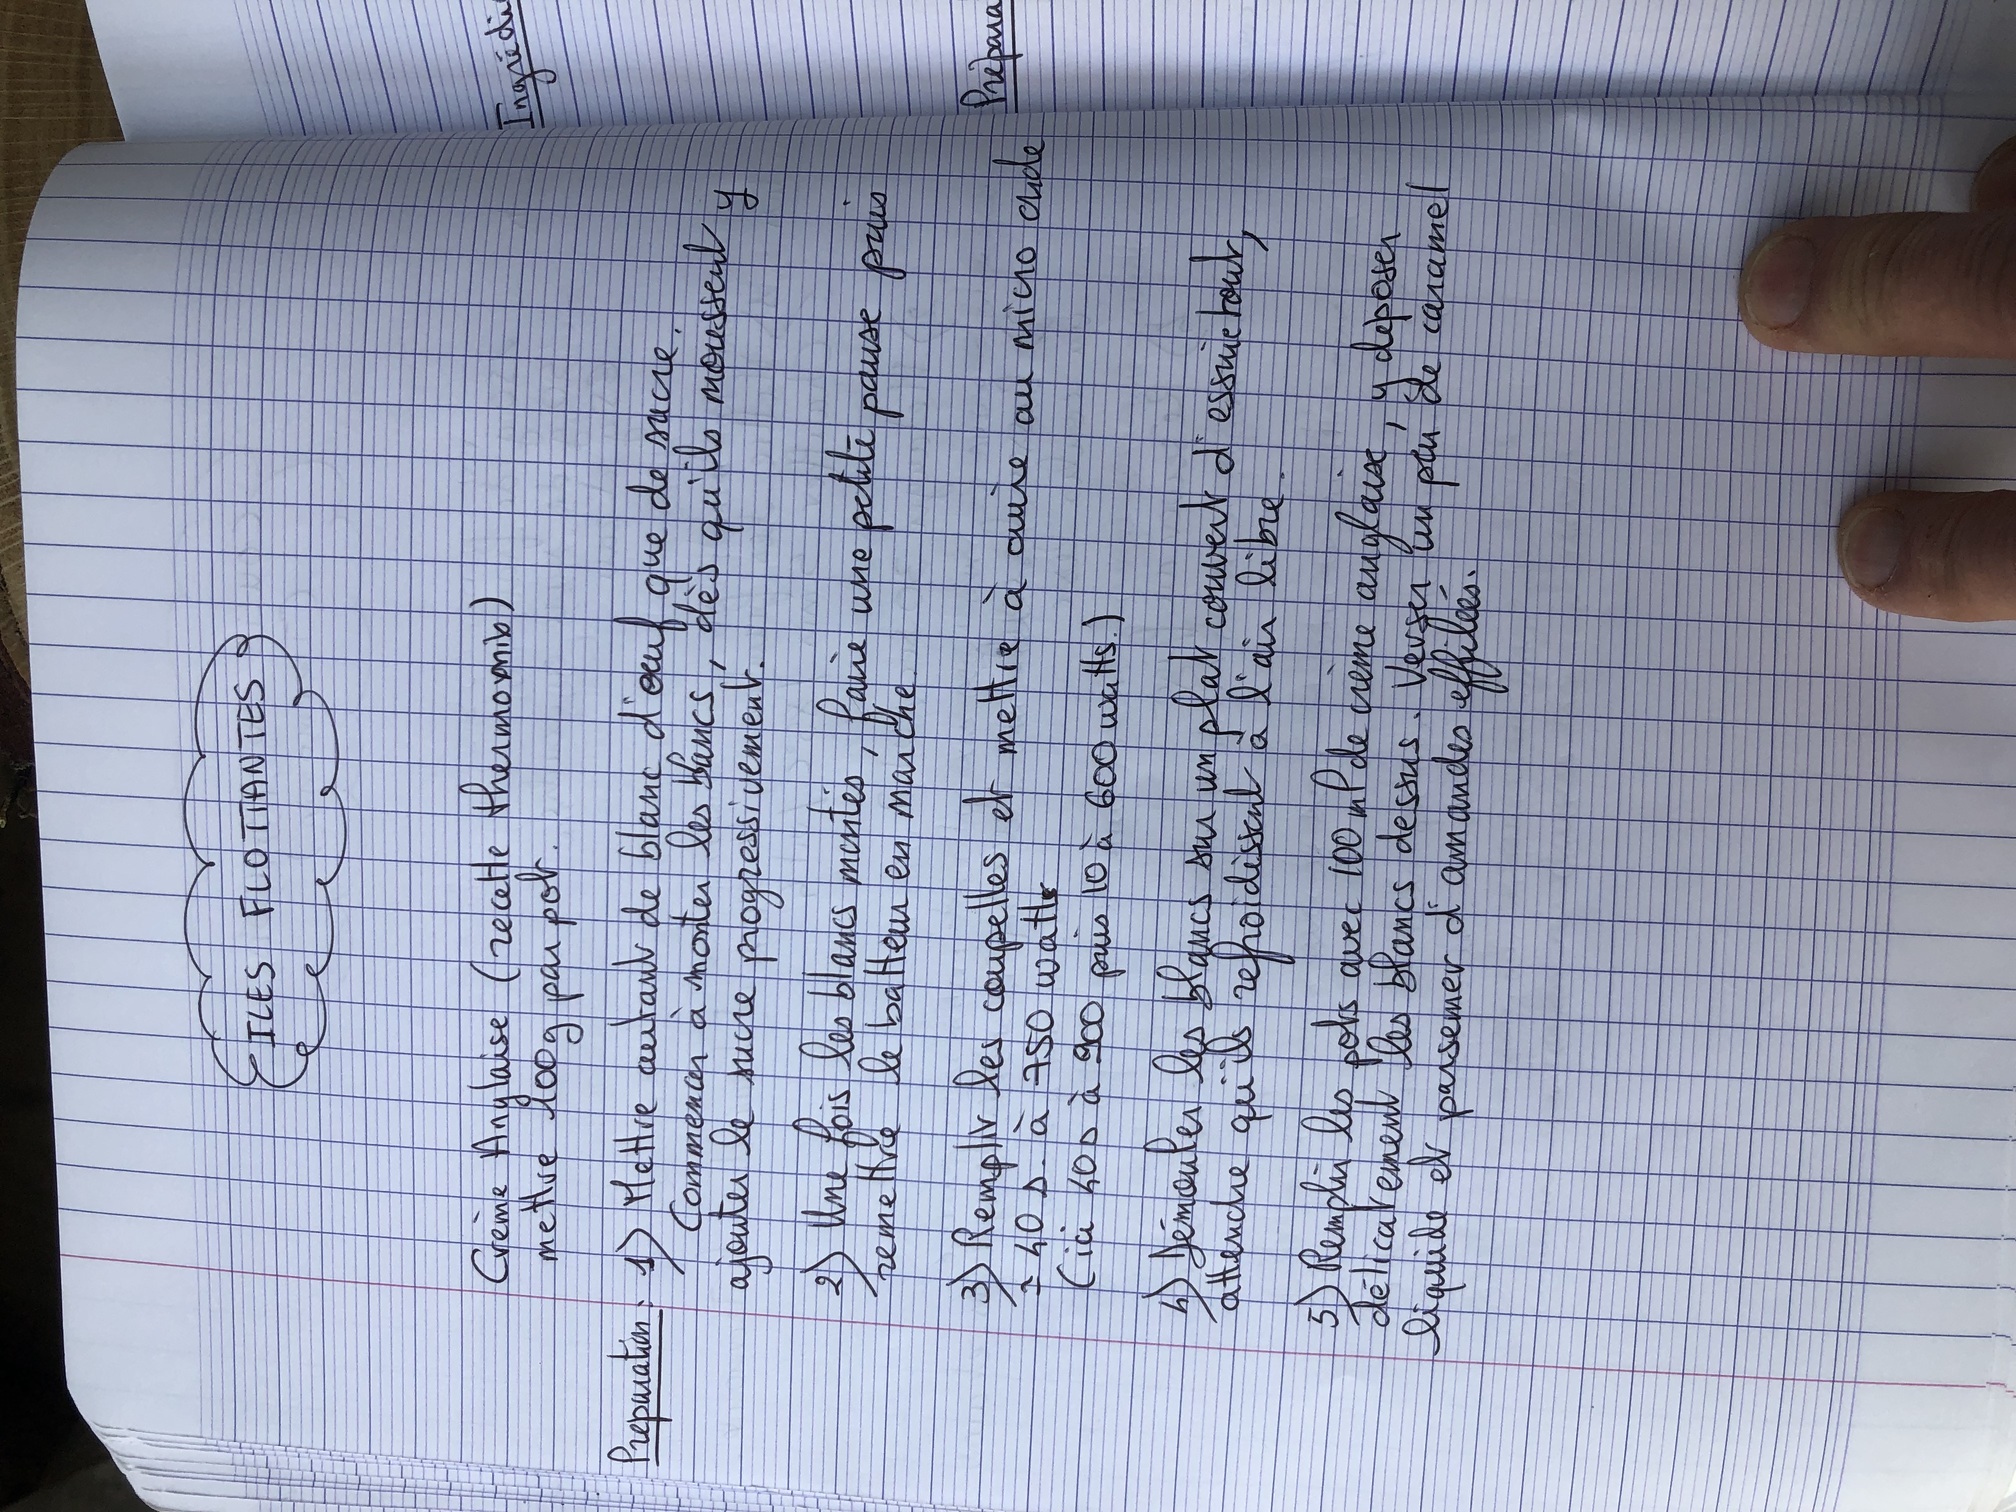 ILES FLOTTANTES
Crème Anglaise (recette thermomix)
mettre 100g par pot.
Preparation : 1) Mettre autant de blanc d'œuf que de sucre.
Commencer à monter les blancs, dès qu'ils moussent y
ajouter le sucre progressivement.
2) Une fois les blancs montés, faire une petite pause puis
remettre le batteur en marche.
3) Remplir les coupelles et mettre à cuire au micro onde
± 40 s. à 750 watts
(ici 40s à 900 puis 10 à 600 watts.)
4) Démouler les blancs sur un plat couvert d'essuietout,
attendre qu'ils refroidissent à l'air libre.
5) Remplir les pots avec 100 ml de crème anglaise, y déposer
délicatement les blancs dessus. Verser un peu de caramel
liquide et parsemer d'amandes effilées.
Ingrédi
Prépara